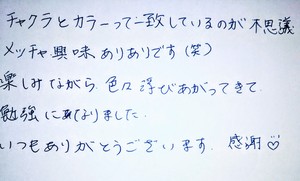 チャクラとカラーって一致しているのが不思議
メッチャ興味ありありです(笑)
楽しみながら、色々浮びあがってきて
勉強になりました.
いつもありがとうございます. 感謝♡